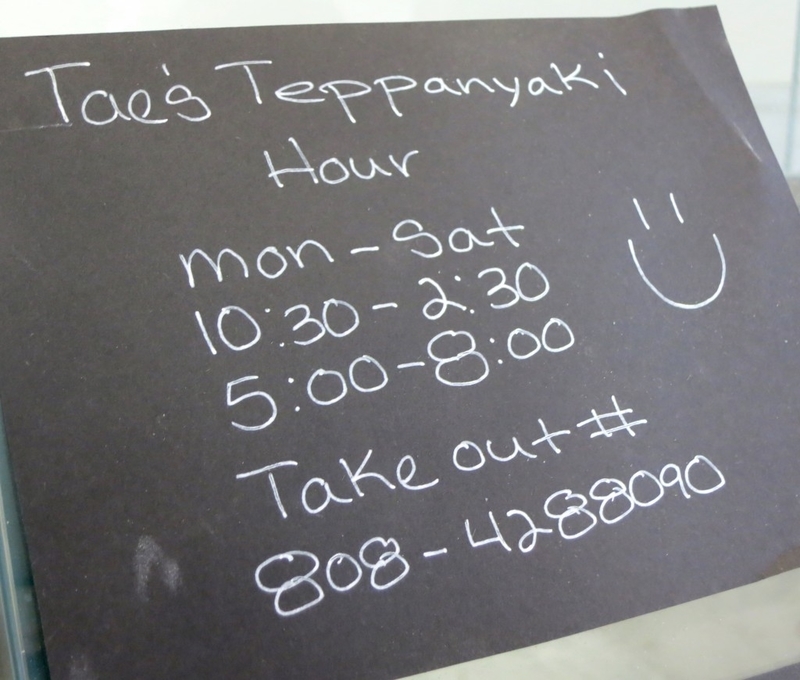 Tae's Teppanyaki
Hour
mon - Sat
10:30 - 2:30
5:00 - 8:00
Take out #
808 - 4288090